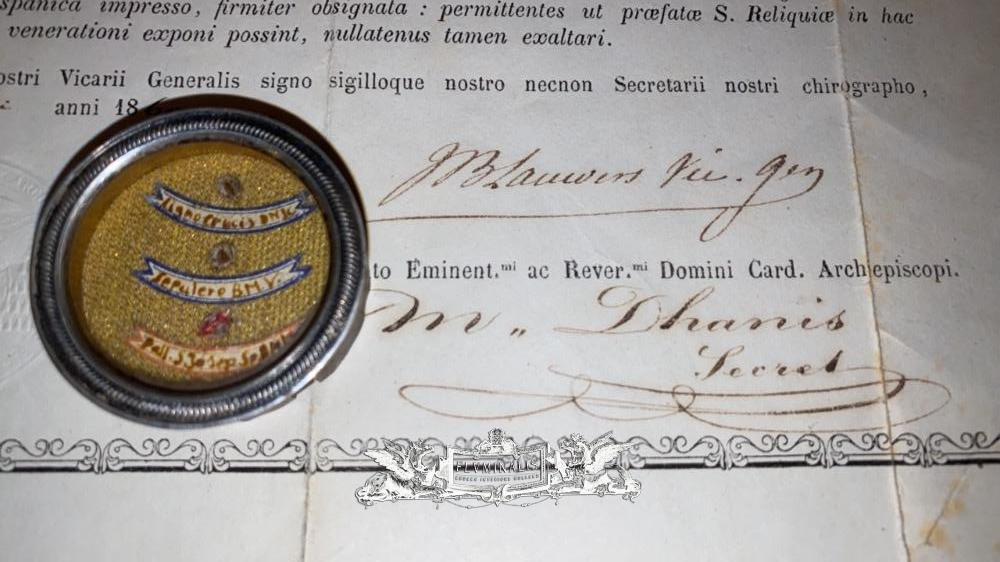 spanica impresso, firmiter obsignata : permittentes ut præfatæ S. Reliquiæ in hac
venerationi exponi possint, nullatenus tamen exaltari.
ostri Vicarii Generalis signo sigilloque nostro necnon Secretarii nostri chirographo,
anni 18
JB Lauwers Vic. gen
Ligno Crucis DNJC
Sepulcro B.M.V.
Pall. S. Josep. Sp BMV
to Eminent.mi ac Rever.mi Domini Card. Archiepiscopi.
Dhanis
Secret
PLVMINALIS